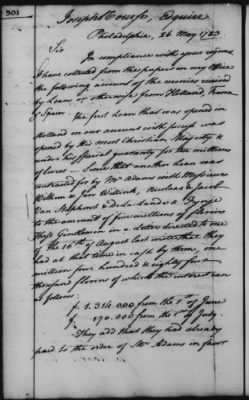 301
Joseph Nourse, Esquire
Philadelphia, 26 May 1783
Sir
In compliance with your
I have collected from the papers in my Office
the following account of the monies received
by Loans or otherwise from Holland, France
& Spain. The first Loan that was opened in
Holland on our account with success was
opened by his most Christian Majesty &
under his special guaranty for ten millions
of livres — Since that another loan was
contracted for by Mr Adams with Messieurs
Wilhem & Jan Willink, Nicolaas & Jacob
Van Staphorst & de la Lande & Fynje
to the amount of five millions of florins
These Gentlemen in a Letter directed to me
of the 16th of August last write that they
had at that time in cash by them, one
million four hundred & eighty four
thousand florins of which the interest ran
as follows:
f. 1.314.000 from the 1st of June
f. 170.000 from the 1st of July.
They add that they had already
paid to the order of Mr Adams in favor